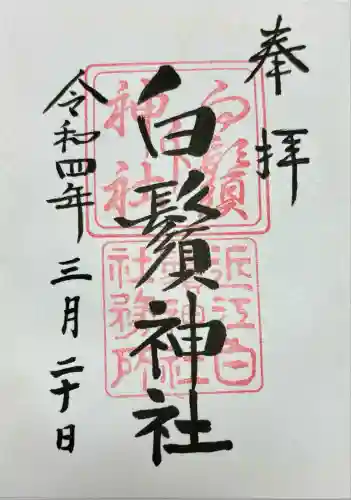 奉拝
白鬚神社
令和四年三月二十日
白鬚神社
近江白鬚神社社務所